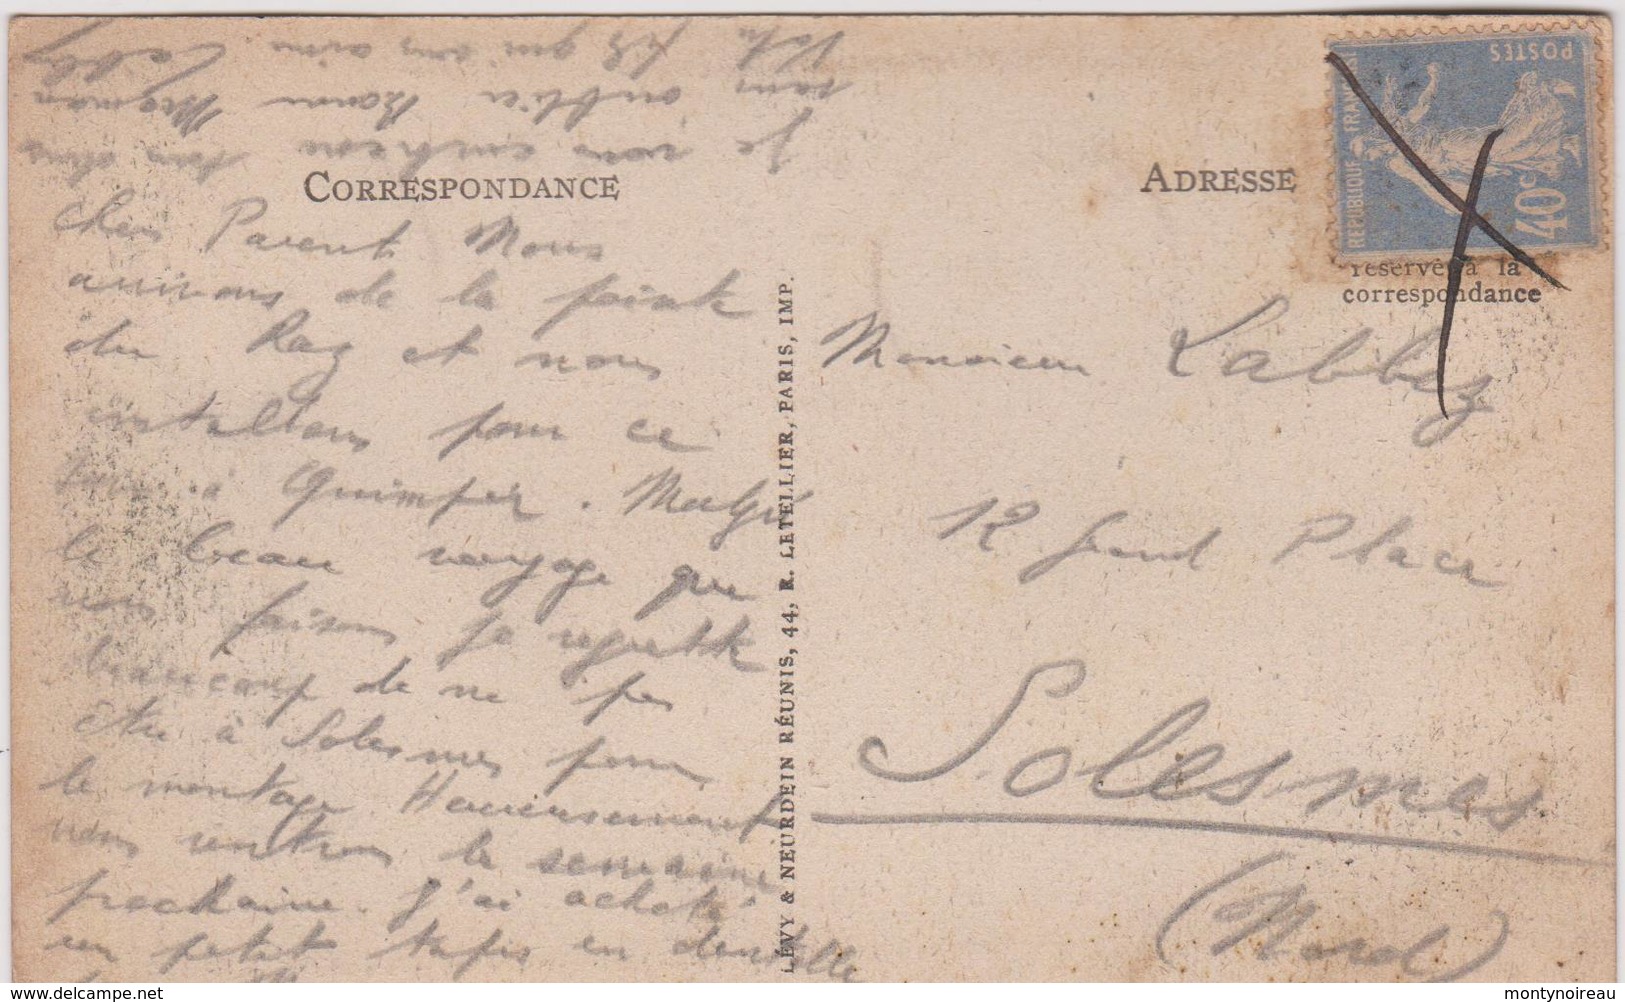 CORRESPONDANCE
Chers Parent Nous
arrivons de la pointe
du Raz et nous
installons pour ce
soir à Quimper. Malgré
le beau voyage que
nous faisons je regrette
beaucoup de ne pas
être à Solesmes pour
le montage Heureusement
nous rentrons la semaine
prochaine. J'ai acheté
un petit tapis en dentelle
Je vous embrasse tous deux
sans oublier Bonne Maman
Votre fils qui vous aime
LÉVY & NEURDEIN RÉUNIS, 44, R. LETELLIER, PARIS, IMP.
ADRESSE
POSTES
REPUBLIQUE FRANÇAISE
40c
réservé à la
correspondance
Monsieur Labbez
12 Grand Place
Solesmes
(Nord)
montynoireau